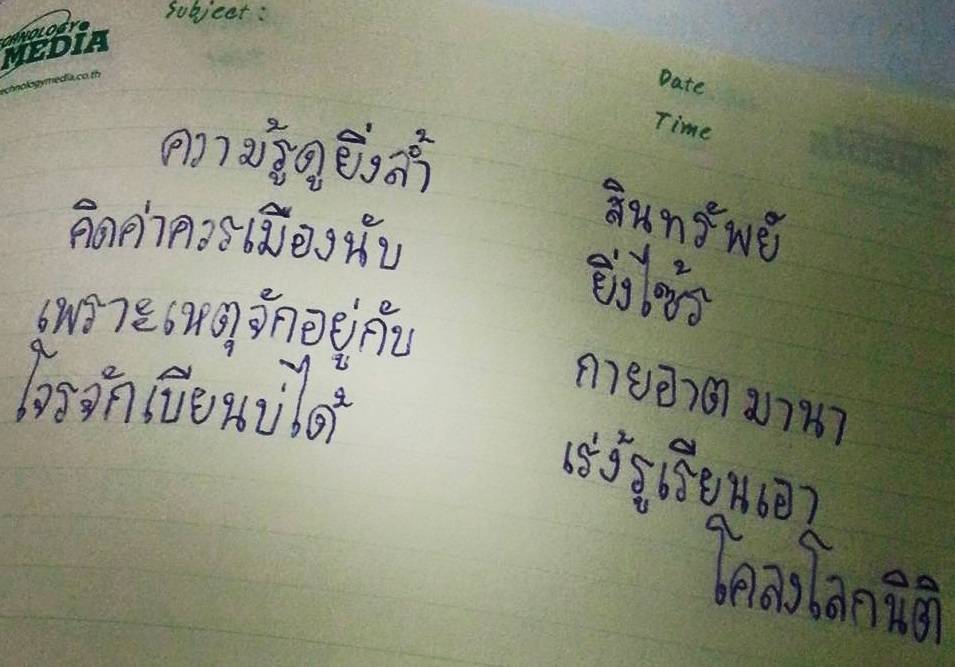 TECHNOLOGY
MEDIA
technologymedia.co.th
Subject :
Date
Time
ความรู้ดูยิ่งล้ำ สินทรัพย์
คิดค่าควรเมืองนับ ยิ่งไซ้ร
เพราะเหตุจักอยู่กับ กายอาต มานา
โจรจักเบียนบ่ได้ เร่งรู้เรียนเอา
โคลงโลกนิติ